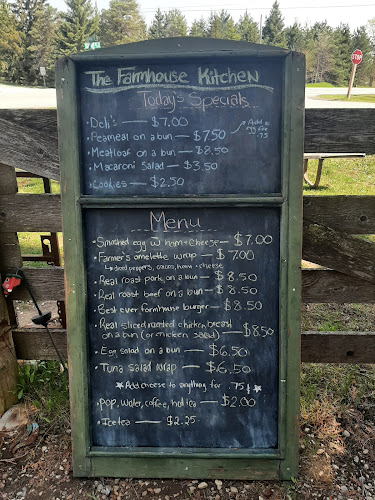 The Farmhouse Kitchen
Today's Specials
• Deli's — $7.00
• Peameal on a bun — $7.50
Add egg for .75
• Meatloaf on a bun — $8.50
• Macaroni Salad — $3.50
• Cookies — $2.50
Menu
• Smushed egg w/ ham + cheese — $7.00
• Farmer's omelette wrap — $7.00
↳ diced peppers, onions, ham + cheese
• Real roast pork on a bun — $8.50
• Real roast beef on a bun — $8.50
• Best ever farmhouse burger — $8.50
• Real sliced roasted chicken breast
on a bun (or chicken salad) — $8.50
• Egg salad on a bun — $6.50
• Tuna Salad wrap — $6.50
★ Add cheese to anything for .75 ¢ ★
• Pop, water, coffee, hot tea — $2.00
• Ice tea — $2.25
STOP